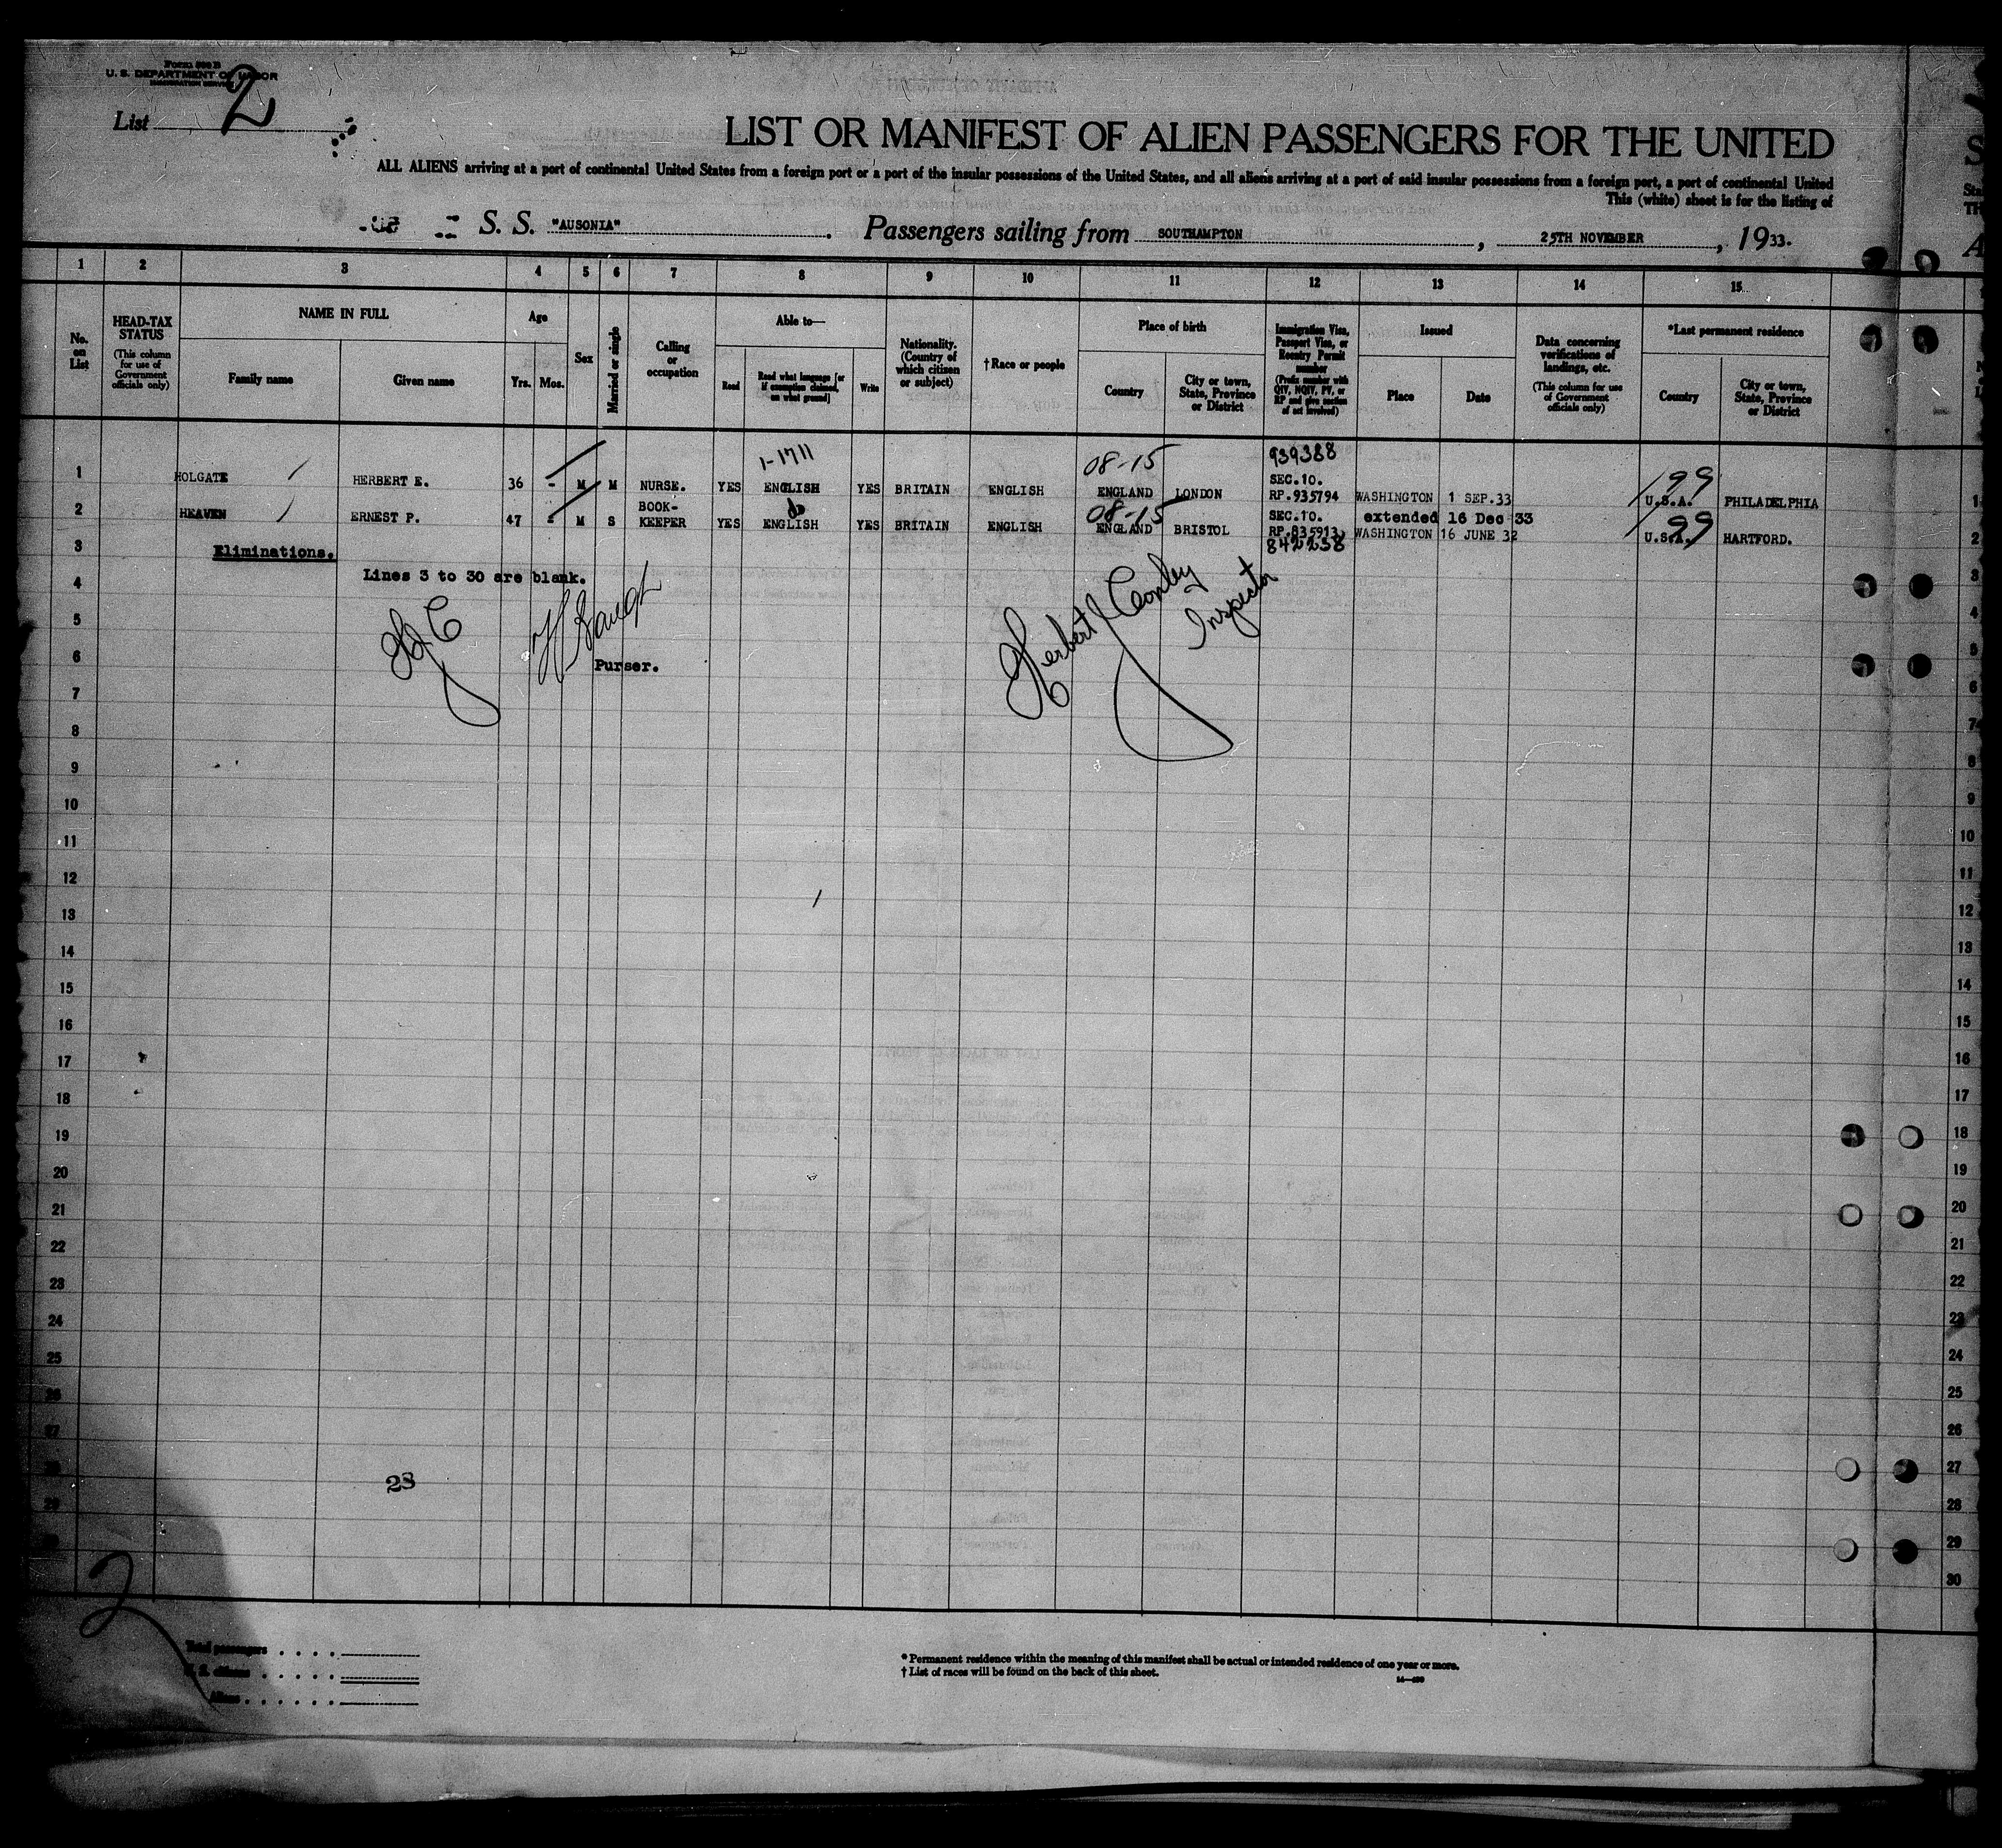 Form 500 B
U. S. DEPARTMENT OF LABOR
IMMIGRATION SERVICE
List 2
LIST OR MANIFEST OF ALIEN PASSENGERS FOR THE UNITED
ALL ALIENS arriving at a port of continental United States from a foreign port or a port of the insular possessions of the United States, and all aliens arriving at a port of said insular possessions from a foreign port, a port of continental United
This (white) sheet is for the listing of
S. S. "AUSONIA" . Passengers sailing from SOUTHAMPTON , 25TH NOVEMBER , 1933.
1 2 3 4 5 6 7 8 9 10 11 12 13 14 15
No. on List
HEAD-TAX STATUS
(This column for use of Government officials only)
NAME IN FULL
Family name Given name
Age
Yrs. Mos.
Sex
Married or single
Calling or occupation
Able to—
Read
Read what language [or if exemption claimed, on what ground]
Write
Nationality. (Country of which citizen or subject)
†Race or people
Place of birth
Country
City or town, State, Province or District
Immigration Visa, Passport Visa, or Reentry Permit number
(Prefix number with QIV, NQIV, PV, or RP and give section of act involved)
Issued
Place Date
Data concerning verifications of landings, etc.
(This column for use of Government officials only)
*Last permanent residence
Country
City or town, State, Province or District
1-1711 08-15 939388 99
1 HOLGATE HERBERT E. 36 - M M NURSE. YES ENGLISH YES BRITAIN ENGLISH ENGLAND LONDON SEC.10. RP.935794 WASHINGTON 1 SEP.33 U.S.A. PHILADELPHIA 1
do 08-15 99
2 HEAVEN ERNEST P. 47 - M S BOOK-KEEPER YES ENGLISH YES BRITAIN ENGLISH ENGLAND BRISTOL SEC.10. RP.835913 extended 16 Dec 33 WASHINGTON 16 JUNE 32 U.S.A. HARTFORD. 2
842238
3 Eliminations. 3
4 Lines 3 to 30 are blank. 4
5 HJC Herbert J Conley Inspector 5
6 Purser. 6
7 7
8 8
9 9
10 10
11 11
12 12
13 13
14 14
15 15
16 16
17 17
18 18
19 19
20 20
21 21
22 22
23 23
24 24
25 25
26 26
27 27
28 28
29 29
30
23
2
Total passengers
U. S. citizens
Aliens
* Permanent residence within the meaning of this manifest shall be actual or intended residence of one year or more.
† List of races will be found on the back of this sheet.